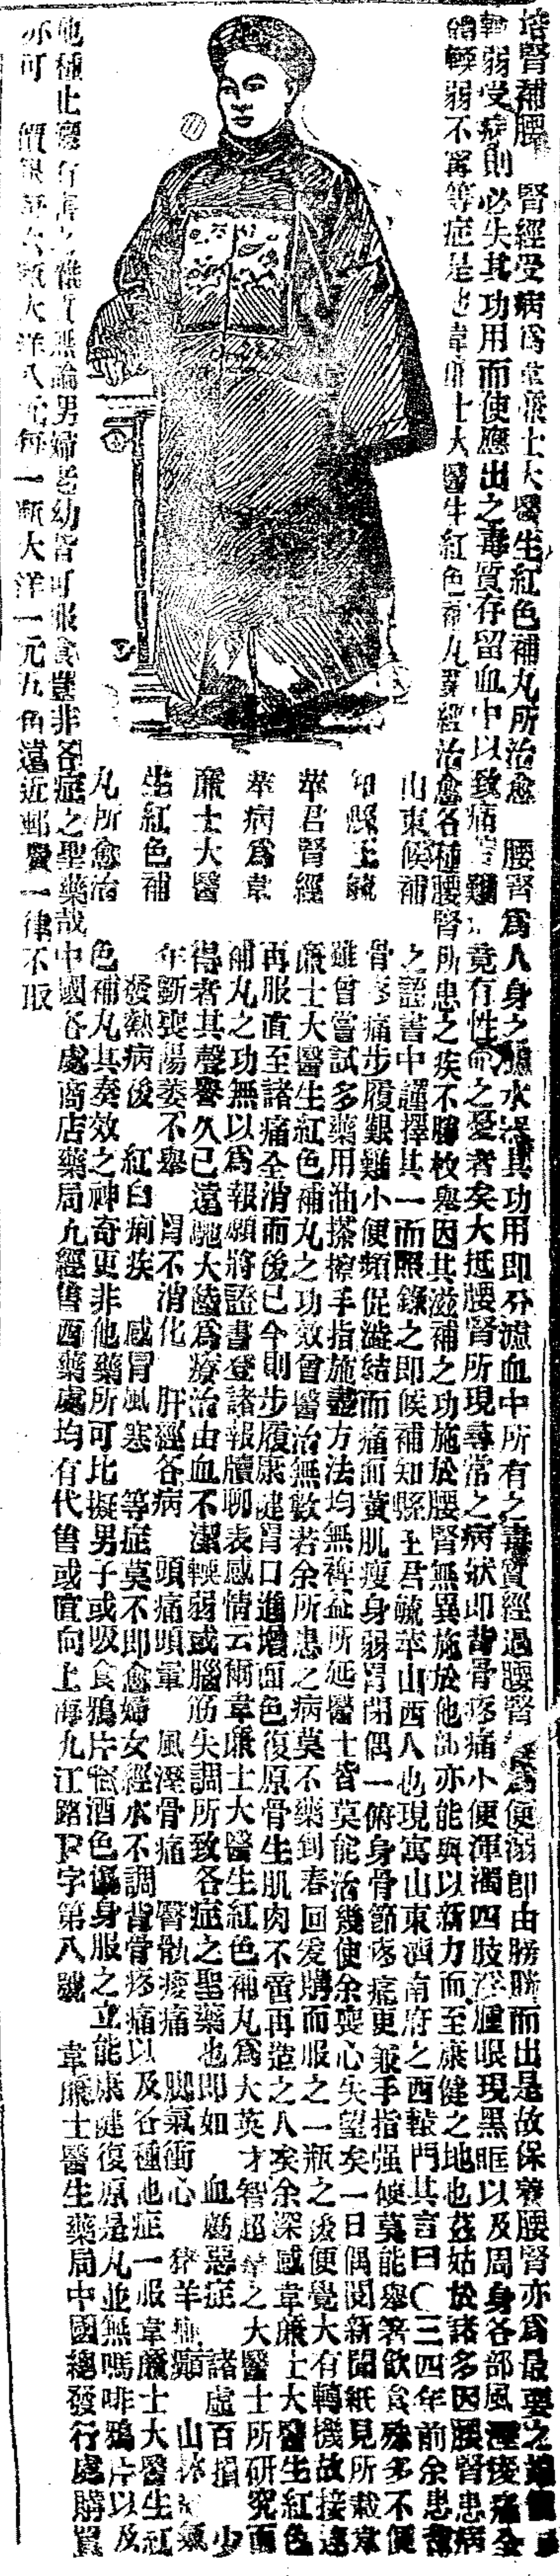 培腎補腰　腎經受病爲韋廉士大醫生紅色補丸所治愈　腰腎爲人身之濾水器其功用即分濾血中所有之毒質經過腰腎變爲便溺即由膀胱而出是故保養腰腎亦爲最要之
軟弱受病則必失其功用而使應出之毒質存留血中以致痛苦難 竟有性命之憂者矣大抵腰腎所現尋常之病狀即背骨疼痛小便渾濁四肢浮腫眼現黑眶以及周身各部風溼痠痛全
體輭弱不寗等症是也韋廉士大醫生紅色補丸曾經治愈各種腰腎所患之疾不勝枚舉因其滋補之功施於腰腎無異施於他部亦能與以新力而至康健之地也茲姑於諸多因腰腎患病
之證書中謹擇其一而照錄之即候補知縣王君毓苹山西人也現寓山東濟南府之西轅門其言曰〇三四年前余患背
骨疼痛步履艱難小便頻促澁結而痛面黃肌瘦身弱胃閉偶一俯身骨節疼痛更兼手指强硬莫能舉箸飲食殊多不便
雖曾嘗試多藥用油搽擦手指施盡方法均無裨益所延醫士皆莫能治幾使余喪心失望矣一日偶閱新聞紙見所載韋
廉士大醫生紅色補丸之功效曾醫治無數若余所患之病莫不藥到春回爰購而服之一瓶之後便覺大有轉機故接連
再服直至諸痛全消而後已今則步履康健胃口進增面色復原骨生肌肉不啻再造之人矣余深感韋廉士大醫生紅色
補丸之功無以爲報願將證書登諸報牘聊表感情云爾韋廉士大醫生紅色補丸爲大英才智超羣之大醫士所研究而
得者其聲譽久已遠馳大陸爲療治由血不潔輭弱或腦筋失調所致各症之聖藥也即如　血薄惡症　諸虛百損　少
年斵喪陽萎不舉　胃不消化　肝經各病　頭痛頭暈　風溼骨痛　臀骩痠痛　脚氣衝心　豬羊癲癎　山林瘴氣
發熱病後　紅白痢疾　感冒風寒　等症莫不即愈婦女經水不調背骨疼痛以及各種他症一服韋廉士大醫生紅
色補丸其奏效之神奇更非他藥所可比擬男子或吸食鴉片慪酒色傷身服之立能康健復原是丸並無嗎啡鴉片以及
他種北藥有害之雜質無論男婦老幼皆可服食豈非各症之聖藥哉中國各處商店藥局凡經售西藥處均有代售或直向上海九江路下字第八號　韋廉士醫生藥局中國總發行處購買
亦可　價銀每六瓶大洋八元每一瓶大洋一元五角遠近郵費一律不取
山東候補
知縣王毓
苹君腎經
萃病爲韋
廉士大醫
生紅色補
丸所愈治